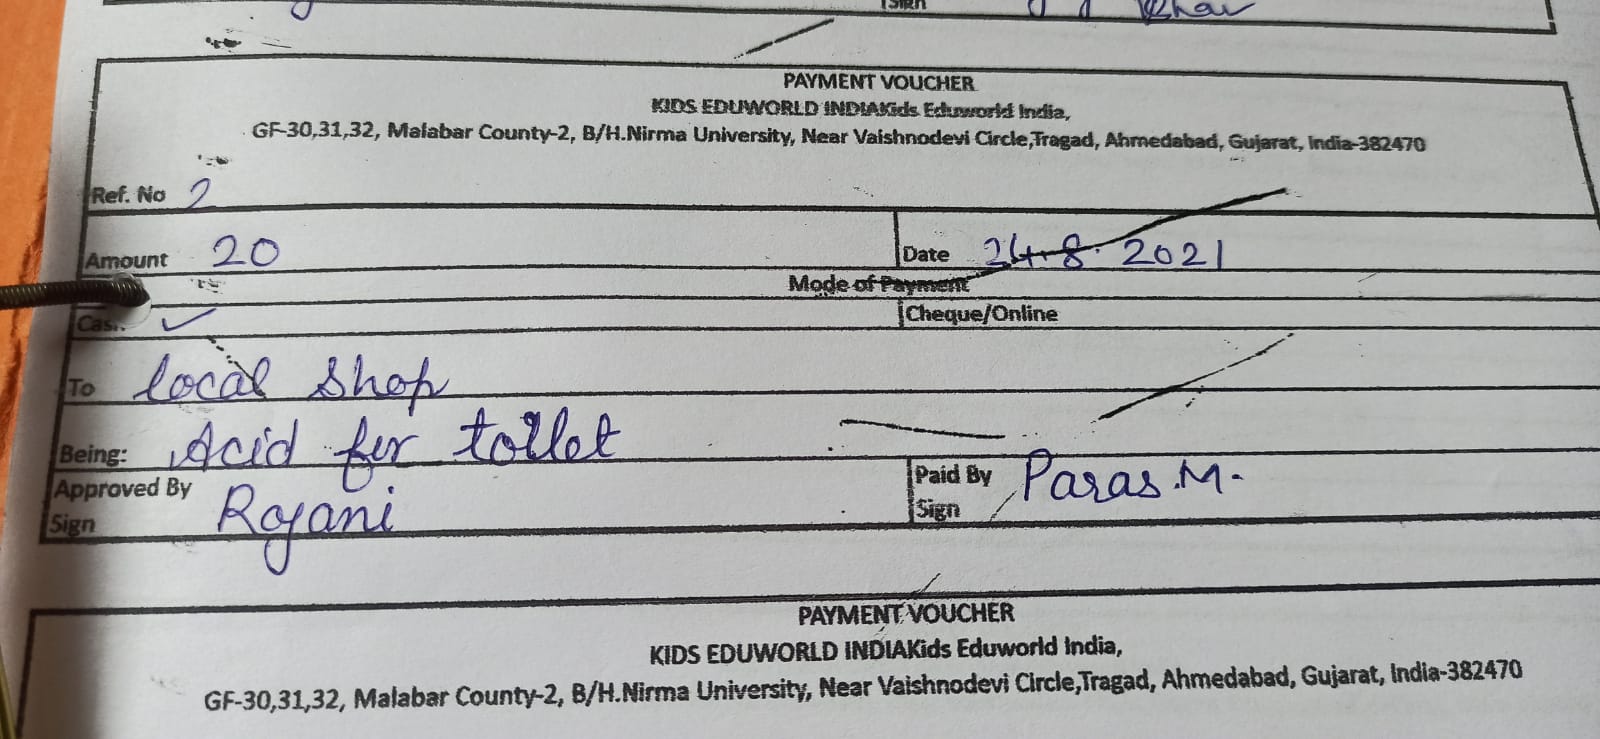 Sign
PAYMENT VOUCHER
KIDS EDUWORLD INDIAKids Eduworld India,
GF-30,31,32, Malabar County-2, B/H.Nirma University, Near Vaishnodevi Circle,Tragad, Ahmedabad, Gujarat, India-382470
Ref. No 2
Amount 20 Date 24.8.2021
Mode of Payment
Cash ✓ Cheque/Online
To local shop
Being: Acid for toilet
Approved By Paid By
Sign Rojani Sign Paras.M.
PAYMENT VOUCHER
KIDS EDUWORLD INDIAKids Eduworld India,
GF-30,31,32, Malabar County-2, B/H.Nirma University, Near Vaishnodevi Circle,Tragad, Ahmedabad, Gujarat, India-382470